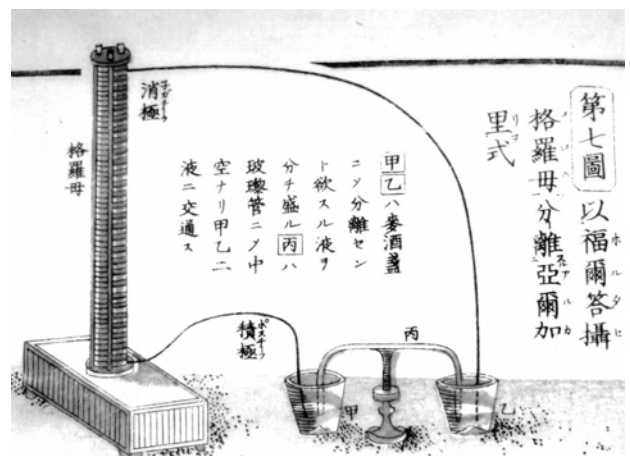 第七圖 以福爾答攝
格羅母分離亞爾加
里式
甲乙ハ麥酒盞
ニ𬼀分離セン
ト欲スル液ヲ
分チ盛ル丙ハ
玻瓈管ニ𬼀中
空ナリ甲乙二
液ニ交通ス
消極
ネガチーフ
格羅母
積極
ポスチーフ
丙
乙
甲